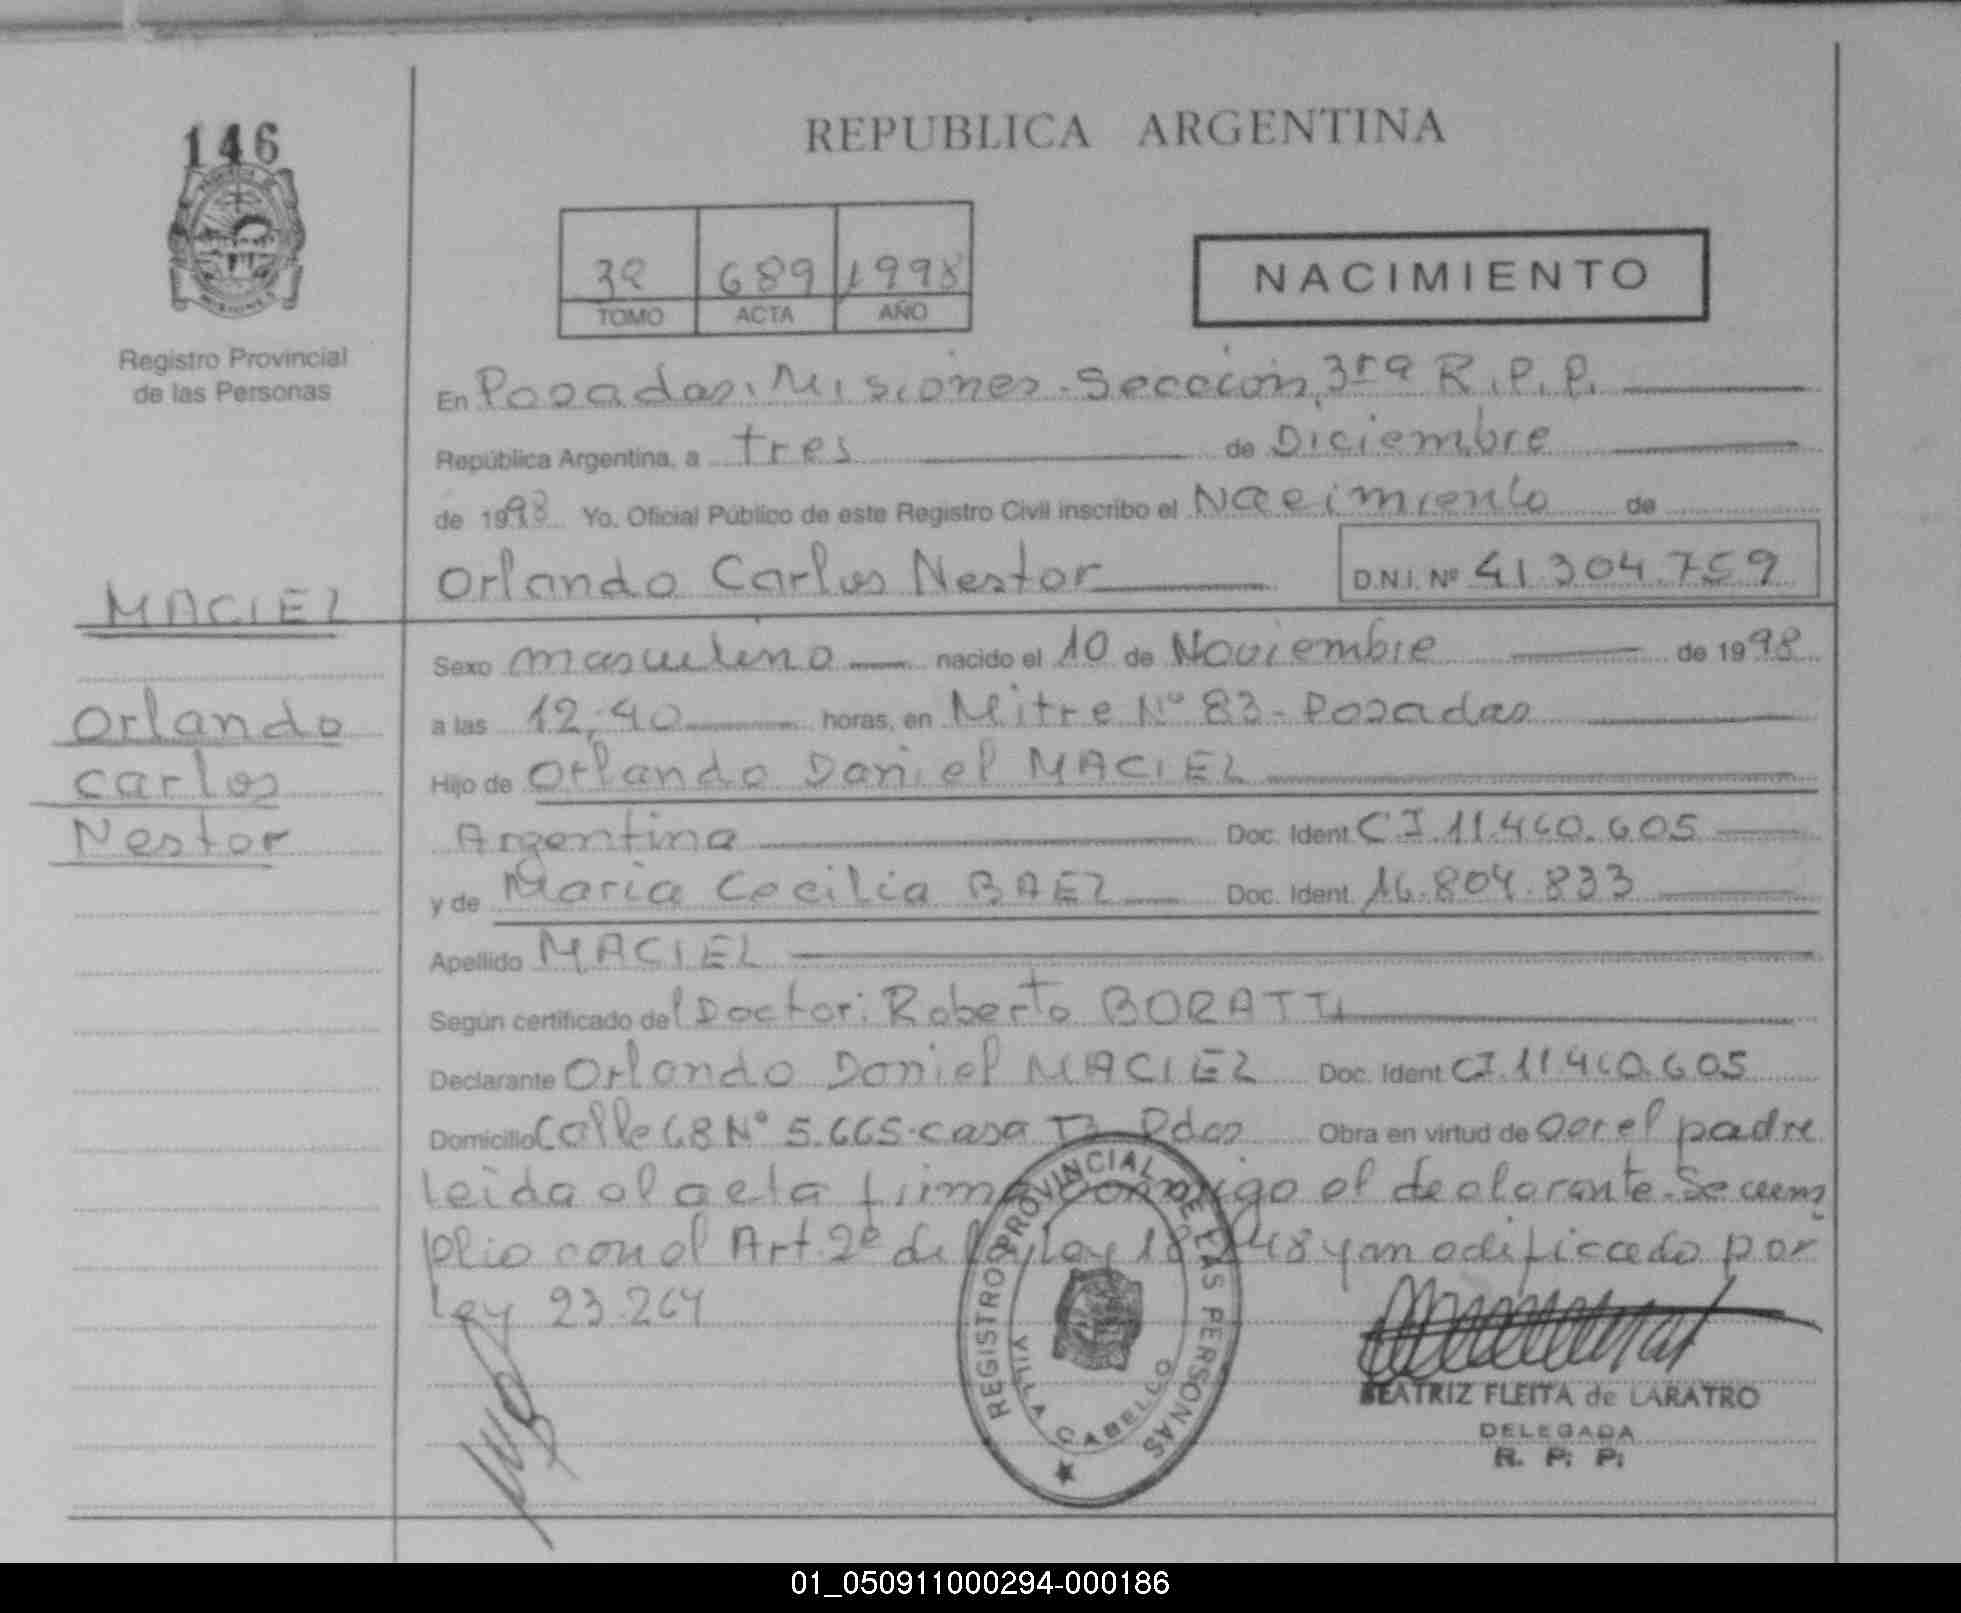 146
Registro Provincial
de las Personas
MACIEL
Orlando
Carlos
Nestor
REPUBLICA ARGENTINA
38 689 1998
TOMO ACTA AÑO
NACIMIENTO
En Posadas, Misiones - Sección, 3ra R.P.P.
República Argentina, a tres de Diciembre
de 1998 Yo, Oficial Público de este Registro Civil inscribo el Nacimiento de
Orlando Carlos Nestor D.N.I. Nº 41.304.759
Sexo masculino nacido el 10 de Noviembre de 1998
a las 12,40 horas, en Mitre Nº 83 - Posadas
Hijo de Orlando Daniel MACIEL
Argentina Doc. Ident. CI.11.460.605
y de Maria Cecilia BAEZ Doc. Ident. 16.804.833
Apellido MACIEL
Según certificado del Doctor: Roberto BORATTI
Declarante Orlando Daniel MACIEL Doc. Ident CI.11.460.605
Domicilio Calle 68 Nº 5.665 - casa Pdas Obra en virtud de ser el padre
Leida al acta firma conmigo el declarante. Se cum
plio con el Art. 2º de la Ley 18.248 y modificado por
Ley 23.264
REGISTRO PROVINCIAL DE LAS PERSONAS
VILLA CABELLO
BEATRIZ FLEITA de LARATRO
DELEGADA
R. P. P.
01_050911000294-000186